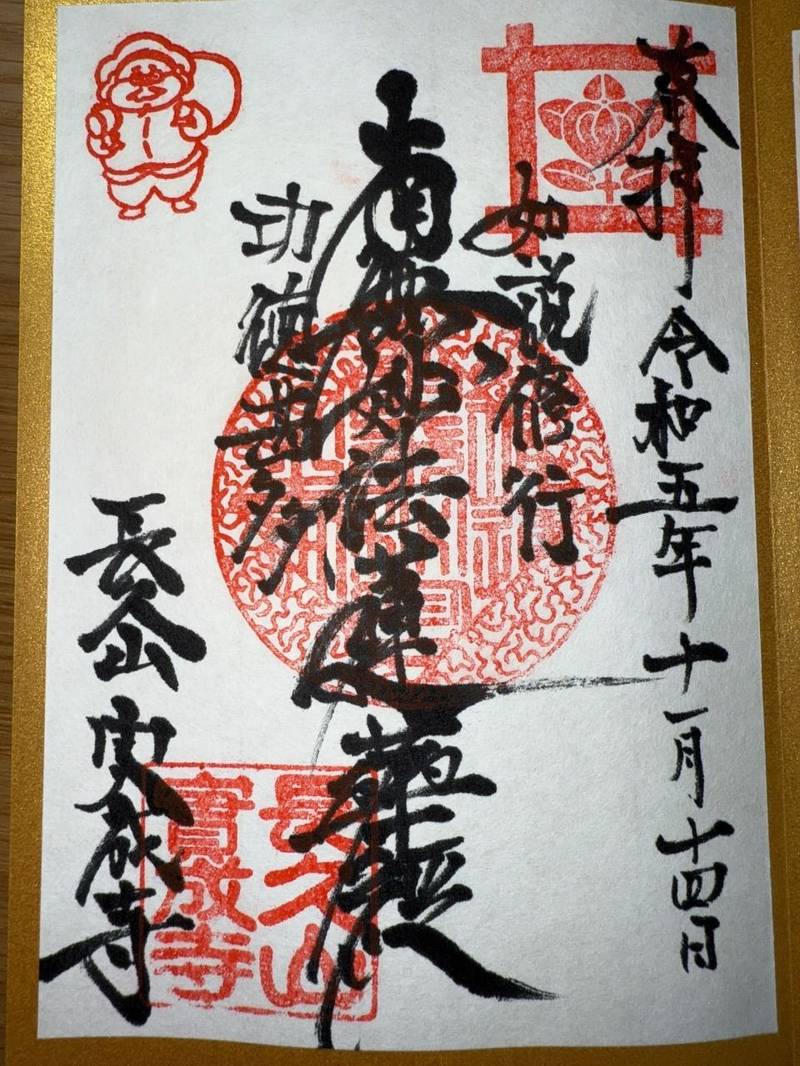 奉拝 令和五年十一月十四日
如説修行
南無妙法蓮華経
功徳甚多
長久山 実成寺
長久山
實成寺